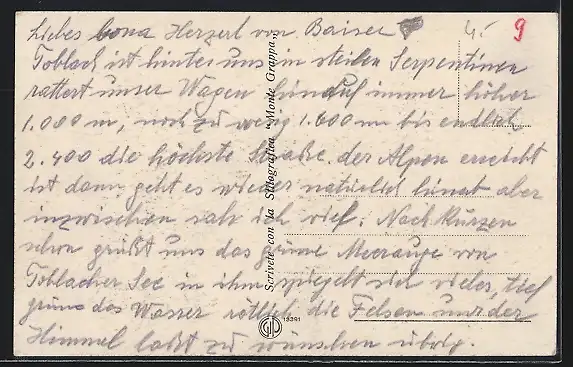 4.-
9
Liebes bona Herzerl von Baiser
Toblach ist hinter uns in steilen Serpentinen
rattert unser Wagen hinauf immer höher
1.000 m, noch zu wenig 1.800 m bis endlich
2.400 die höchste Straße der Alpen erreicht
ist dann geht es wieder natürlich hinab aber
inzwischen sah ich viel. Nach kurzen
schon grüßt uns das grüne Meerauge von
Toblacher See in ihm spiegelt sich vieles, tief
grüne das Wasser rötlich die Felsen und der
Himmel läßt zu wünschen übrig.
Scrivete con la Stilografica "Monte Grappa"
13391